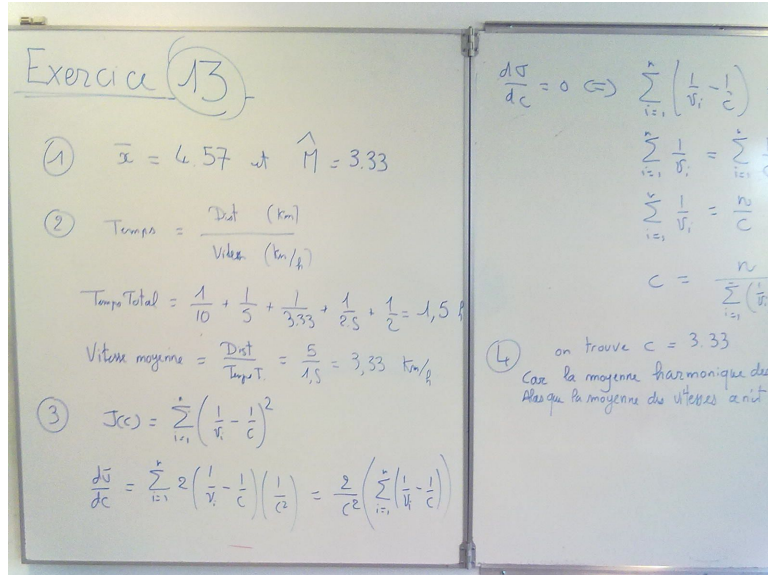 Exercice 13
① x̄ = 4.57 et M̂ = 3.33
② Temps = Dist (Km) / Vitesse (Km/h)
Temps Total = 1/10 + 1/5 + 1/3.33 + 1/2.5 + 1/2 = 1,5 h
Vitesse moyenne = Dist/Temps T. = 5/1,5 = 3,33 Km/h
③ J(c) = ∑_{i=1}^{n} (1/v_i - 1/c)^2
dJ/dc = ∑_{i=1}^{n} 2 (1/v_i - 1/c) (1/c^2) = 2/c^2 (∑_{i=1}^{n} (1/v_i - 1/c))
dJ/dc = 0 <=> ∑_{i=1}^{n} (1/v_i - 1/c)
∑_{i=1}^{n} 1/v_i = ∑_{i=1}^{n} 1/c
∑_{i=1}^{n} 1/v_i = n/c
c = n / ∑_{i=1}^{n} (1/v_i
④ on trouve c = 3.33
Car la moyenne harmonique des
Alors que la moyenne des vitesses